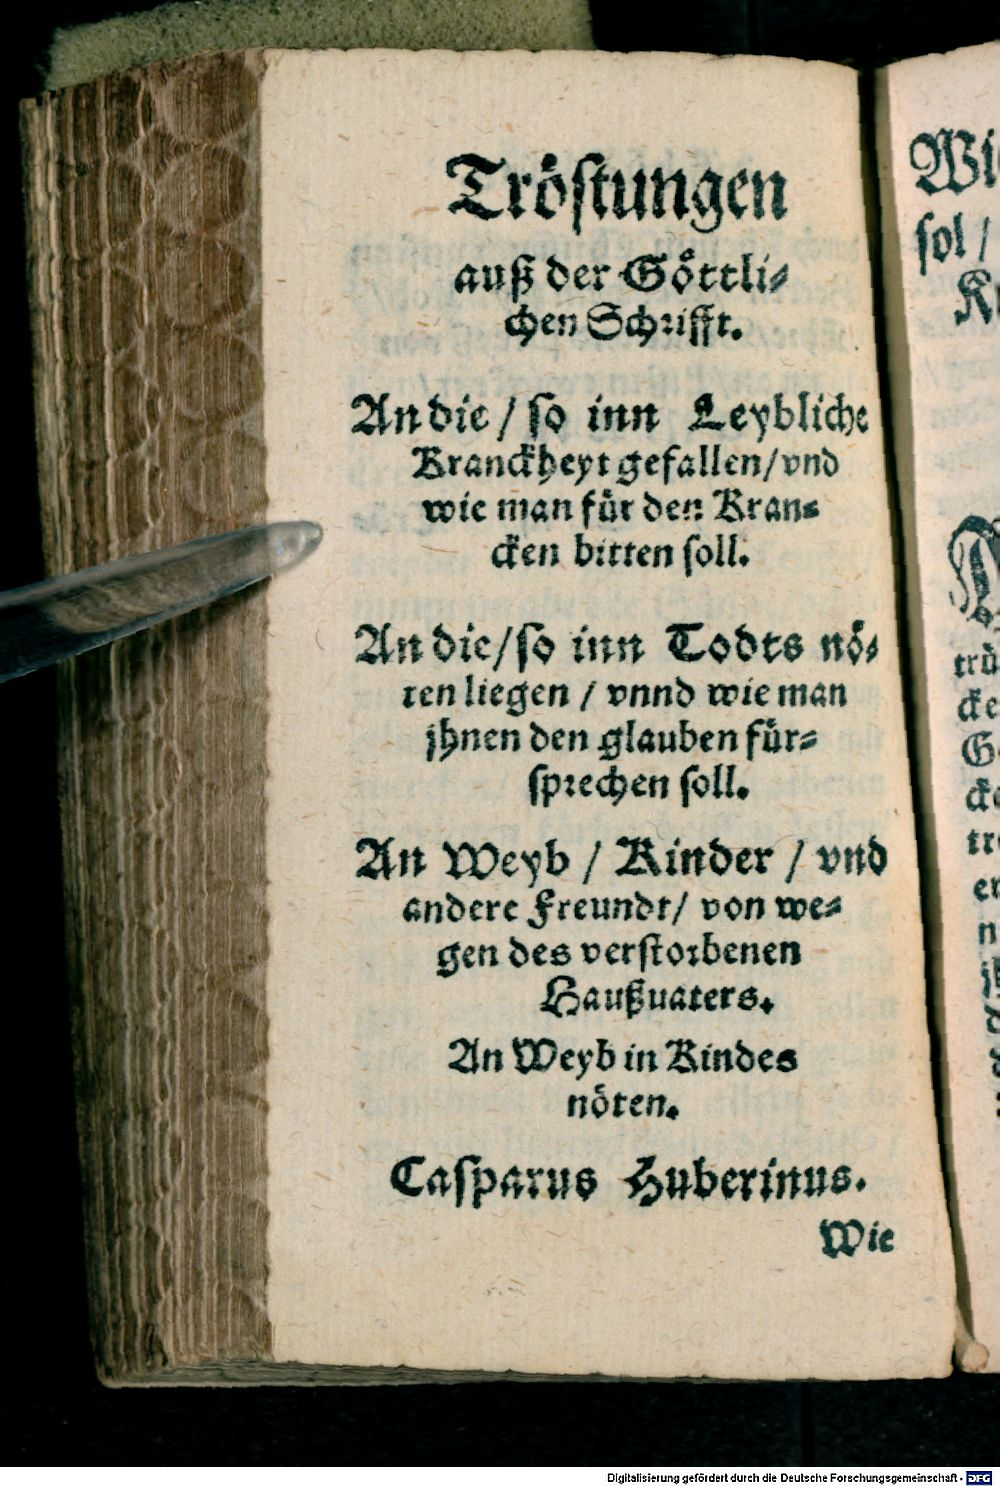 Tröstungen
auß der Göttli⸗
chen Schrifft.
An die / so inn Leybliche
Kranckheyt gefallen/vnd
wie man für den Kran⸗
cken bitten soll.
An die/so inn Todts nö⸗
ten liegen / vnnd wie man
jhnen den glauben für⸗
sprechen soll.
An Weyb / Kinder / vnd
andere Freundt/ von we⸗
gen des verstorbenen
Haußuaters.
An Weyb in Kindes
nöten.
Casparus Huberinus.
Wie
sol /
Digitalisierung gefördert durch die Deutsche Forschungsgemeinschaft - DFG